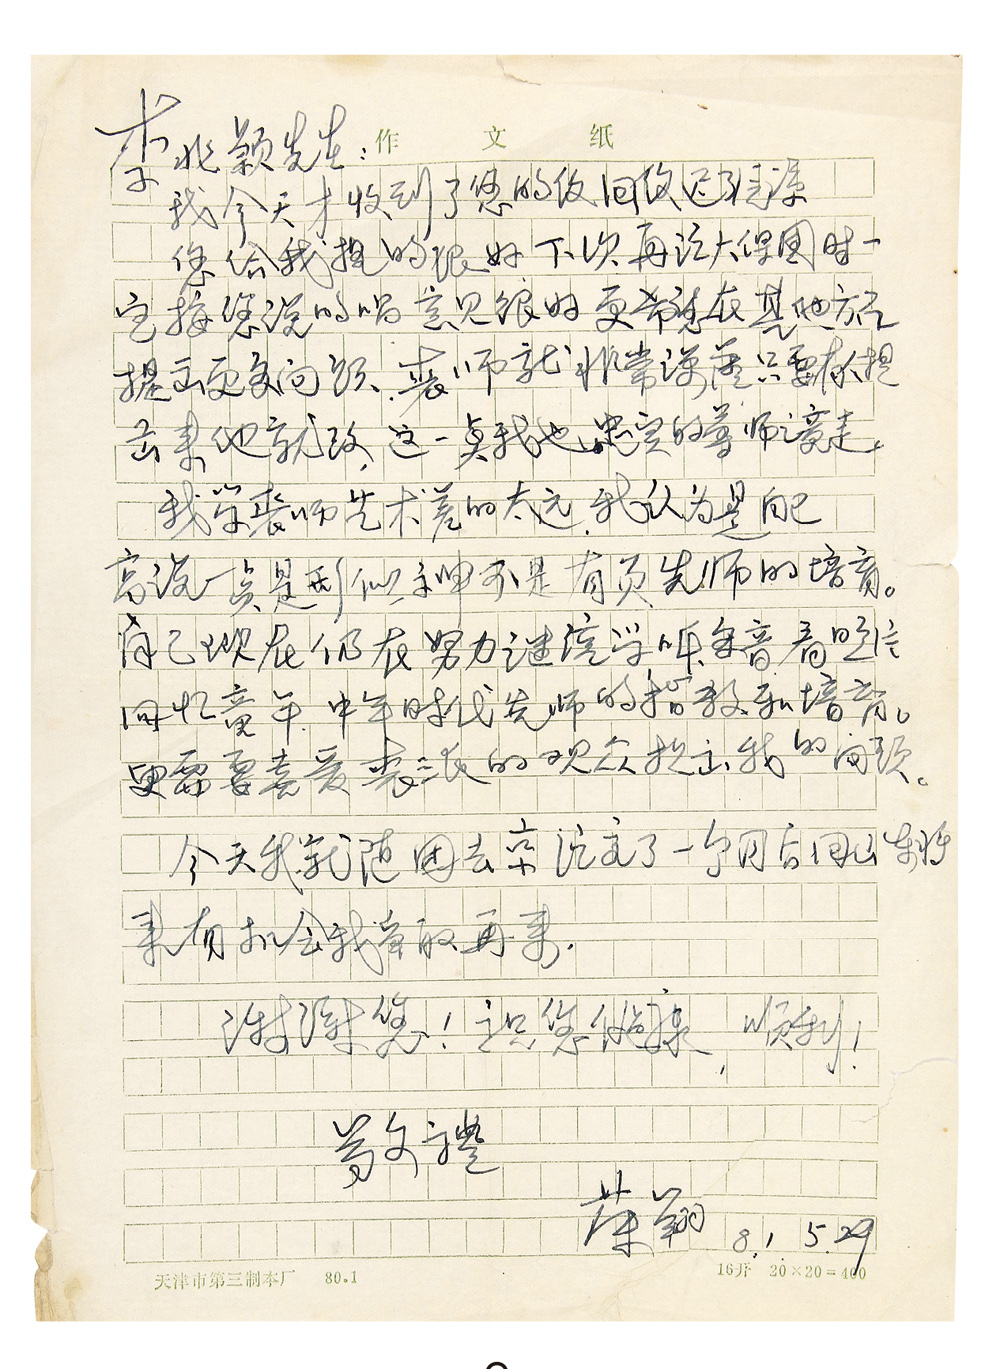 作 文 纸
李兆颖先生：
我今天才收到了您的信回信迟了请谅
您给我提的很好下次再说大保国时一
定按您说的唱 意见很好 更希望在其他方面
提出更多问题、裘师就非常谦虚只要有人提
出来他就改,这一点我也忠实的尊师意走。
我学裘师艺术差的太远,我认为是自己
一点是形似 不是有负先师的培育。
自己现在仍在努力 学听录音
回忆童年.中年时代先师的指教和培育。
更需要喜爱裘派的观众提出我的问题。
今天我就随团去京演出了一个月后回山东将
来有机会我争取再来.
谢谢您！祝您健康,顺利！
敬礼
荣翔 81.5.29
天津市第三制本厂 80.1 16开 20×20=400